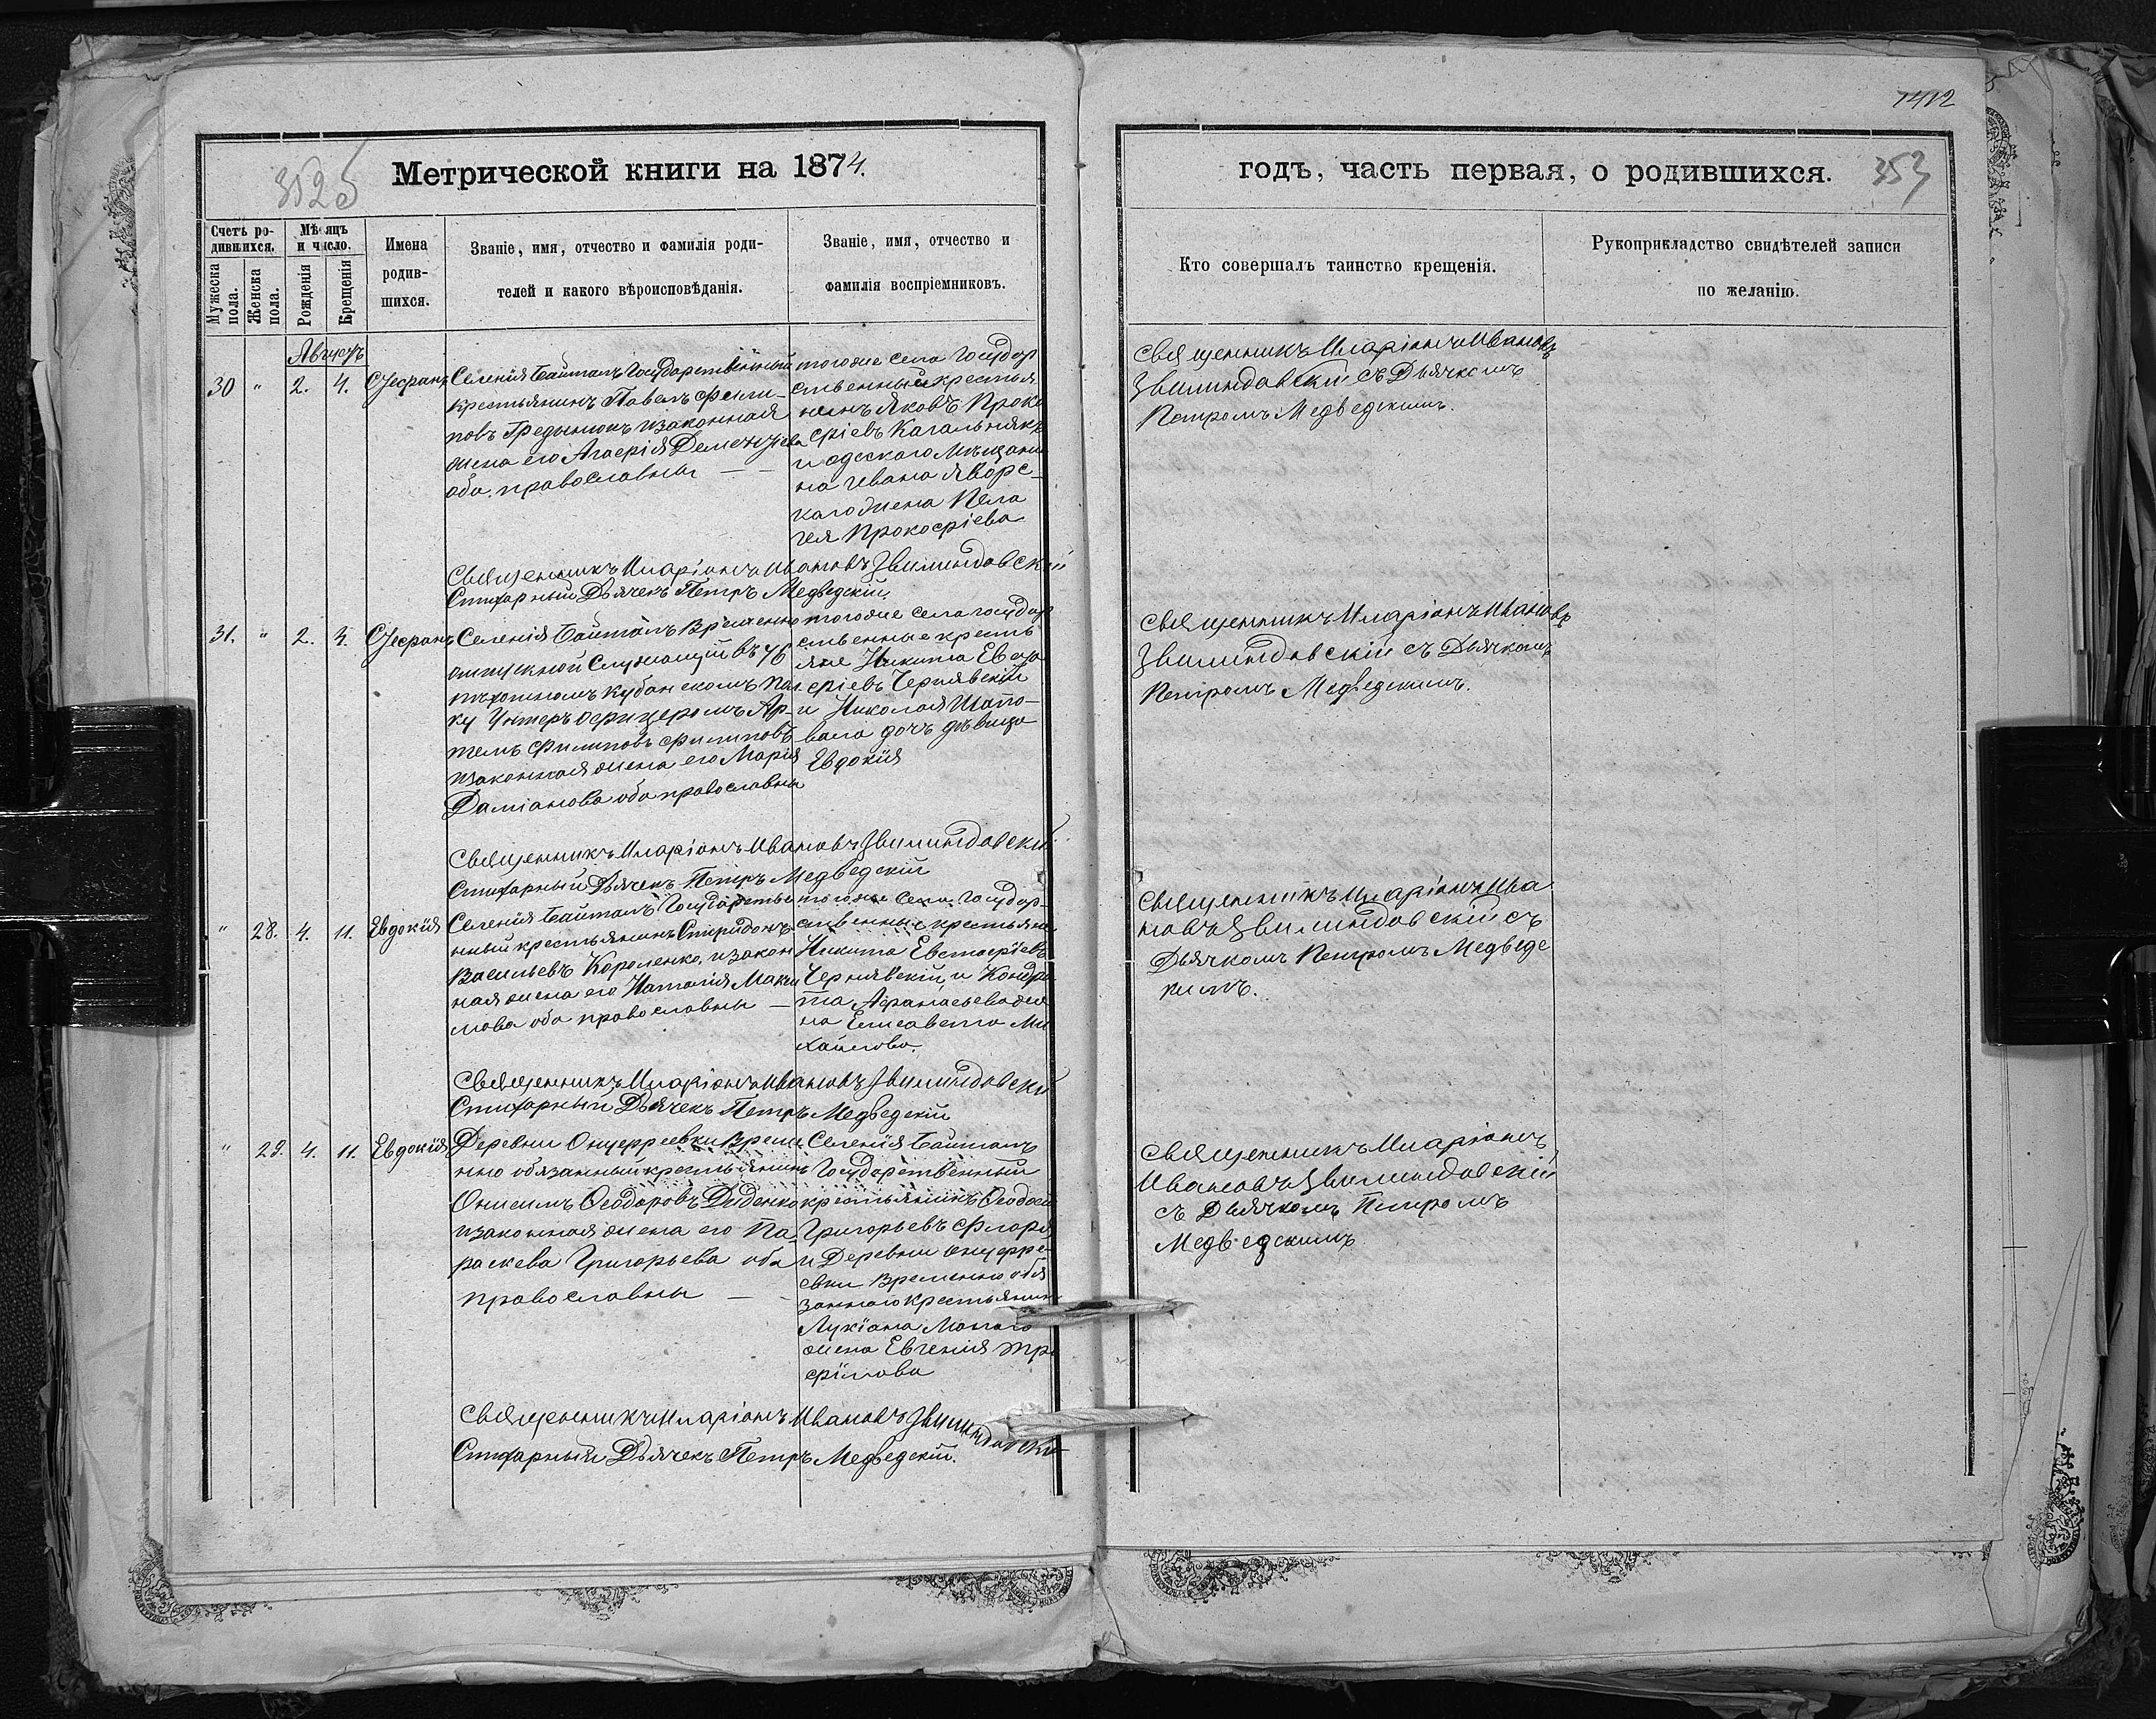 1412
352б
Метрической книги на 1874.
годъ, часть первая, о родившихся.
353
Счетъ ро-
дившихся.
Мужеска пола.
Женска пола.
Мѣсяцъ
и число.
Рожденія
Крещенія
Имена
родив-
шихся.
Званіе, имя, отчество и фамилія роди-
телей и какого вѣроисповѣданія.
Званіе, имя, отчество и
фамилія воспріемниковъ.
Кто совершалъ таинство крещенія.
Рукоприкладство свидѣтелей записи
по желанію.
Августъ
30 " 2. 4. Стефанъ
Селенія Байталъ Государственный
крестьянинъ Павелъ Фили-
повъ изаконная
жена его Агафія Дементіева
оба православны
тогоже села Государ
ственный крестья
нинъ Яковъ Проко
фіевъ Кагальнякъ
и одескаго Мѣщани
на Ивана Яворс-
каго жена Пела
гея Прокофіева
Священникъ Иларіонъ Ивановъ
Звилиндовскій съ Дьячкомъ
Петромъ Медведскимъ.
Священникъ Иларіонъ Ивановъ Звилиндовскій
Стихарный Дьячекъ Петръ Медведскій
31. " 2. 4. Стефанъ
Селенія Байталъ Временно
отпускной Служащій въ 76
пѣхотномъ Кубанскомъ пол
ку Унтеръ офицеромъ Ар-
темъ Филиповъ Филиповъ
изаконная жена его Марія
Даміанова оба православны
тогоже села государ
ственные кресть
яне Никита Евста
фіевъ Чернявскій
и Николая Шапо-
вала дочь дѣвица
Евдокія
Священникъ Иларіонъ Ивановъ
Звилиндовскій съ Дьячкомъ
Петромъ Медведскимъ.
Священникъ Иларіонъ Ивановъ Звилиндовскій
Стихарный Дьячекъ Петръ Медведскій
" 28. 4. 11. Евдокія
Селенія Байталъ Государстве
нный крестьянинъ Спиридонъ
Васильевъ Короленко, изакон
ная жена его Наталія Макси
мова оба православны
тогоже села Государ-
ственные крестьяне
Никита Евстафіевъ
Чернявскій и Кондра
та Афанасьева же
на Елисавета Ми
хайлова.
Священникъ Иларіонъ Ива
новъ Звилиндовскій съ
Дьячкомъ Петромъ Медведс
кимъ.
Священникъ Иларіонъ Ивановъ Звилиндовскій
Стихарный Дьячекъ Петръ Медведскій
" 29. 4. 11. Евдокія
Деревни Онуфріевки Време
нно обязанный крестьянинъ
Онисимъ Ѳеодоровъ Диденко
изаконная жена его Па-
раскева Григорьева оба
православны
Селенія Байталъ
Государственный
крестьянинъ Ѳеодосій
Григорьевъ Флоря
и Деревни Онуфрі-
евки Временно обя
заннаго крестьянина
Лукіана
жена Евгенія Тро
фімова
Священникъ Иларіонъ
Ивановъ Звилиндовскій
съ Дьячкомъ Петромъ
Медведскимъ
Священникъ Иларіонъ Ивановъ Звилиндовскій
Стихарный Дьячекъ Петръ Медведскій.